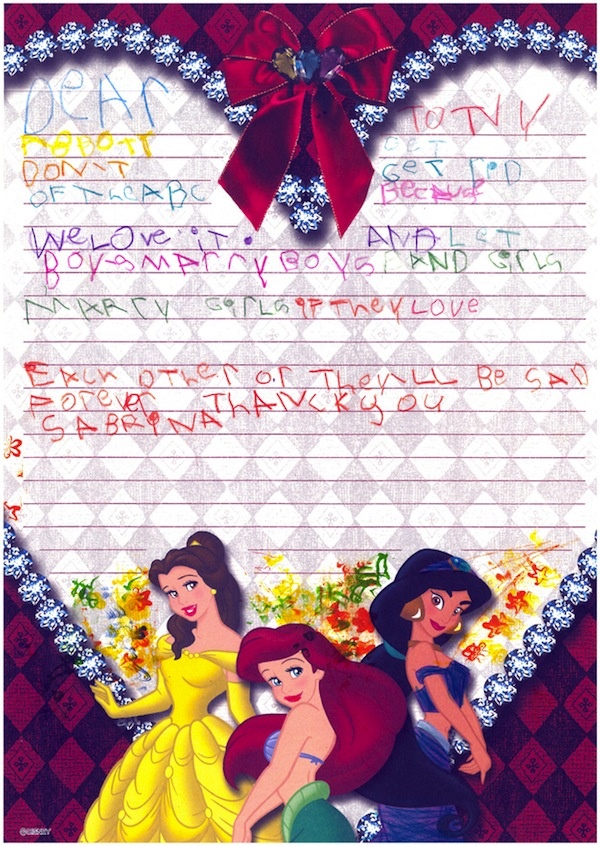 DeAr TO TNY
ABOTT
DON'T GeT riD
OF The ABC Becaue
We LOve iT. AND LeT
BOYS MArry BOYS AND GirLS
MARRY GirLS iF They LOVe
EACH OTHer Or TheyLL Be SAD
FOrever THANCK yOU
SABRiNA
©DISNEY